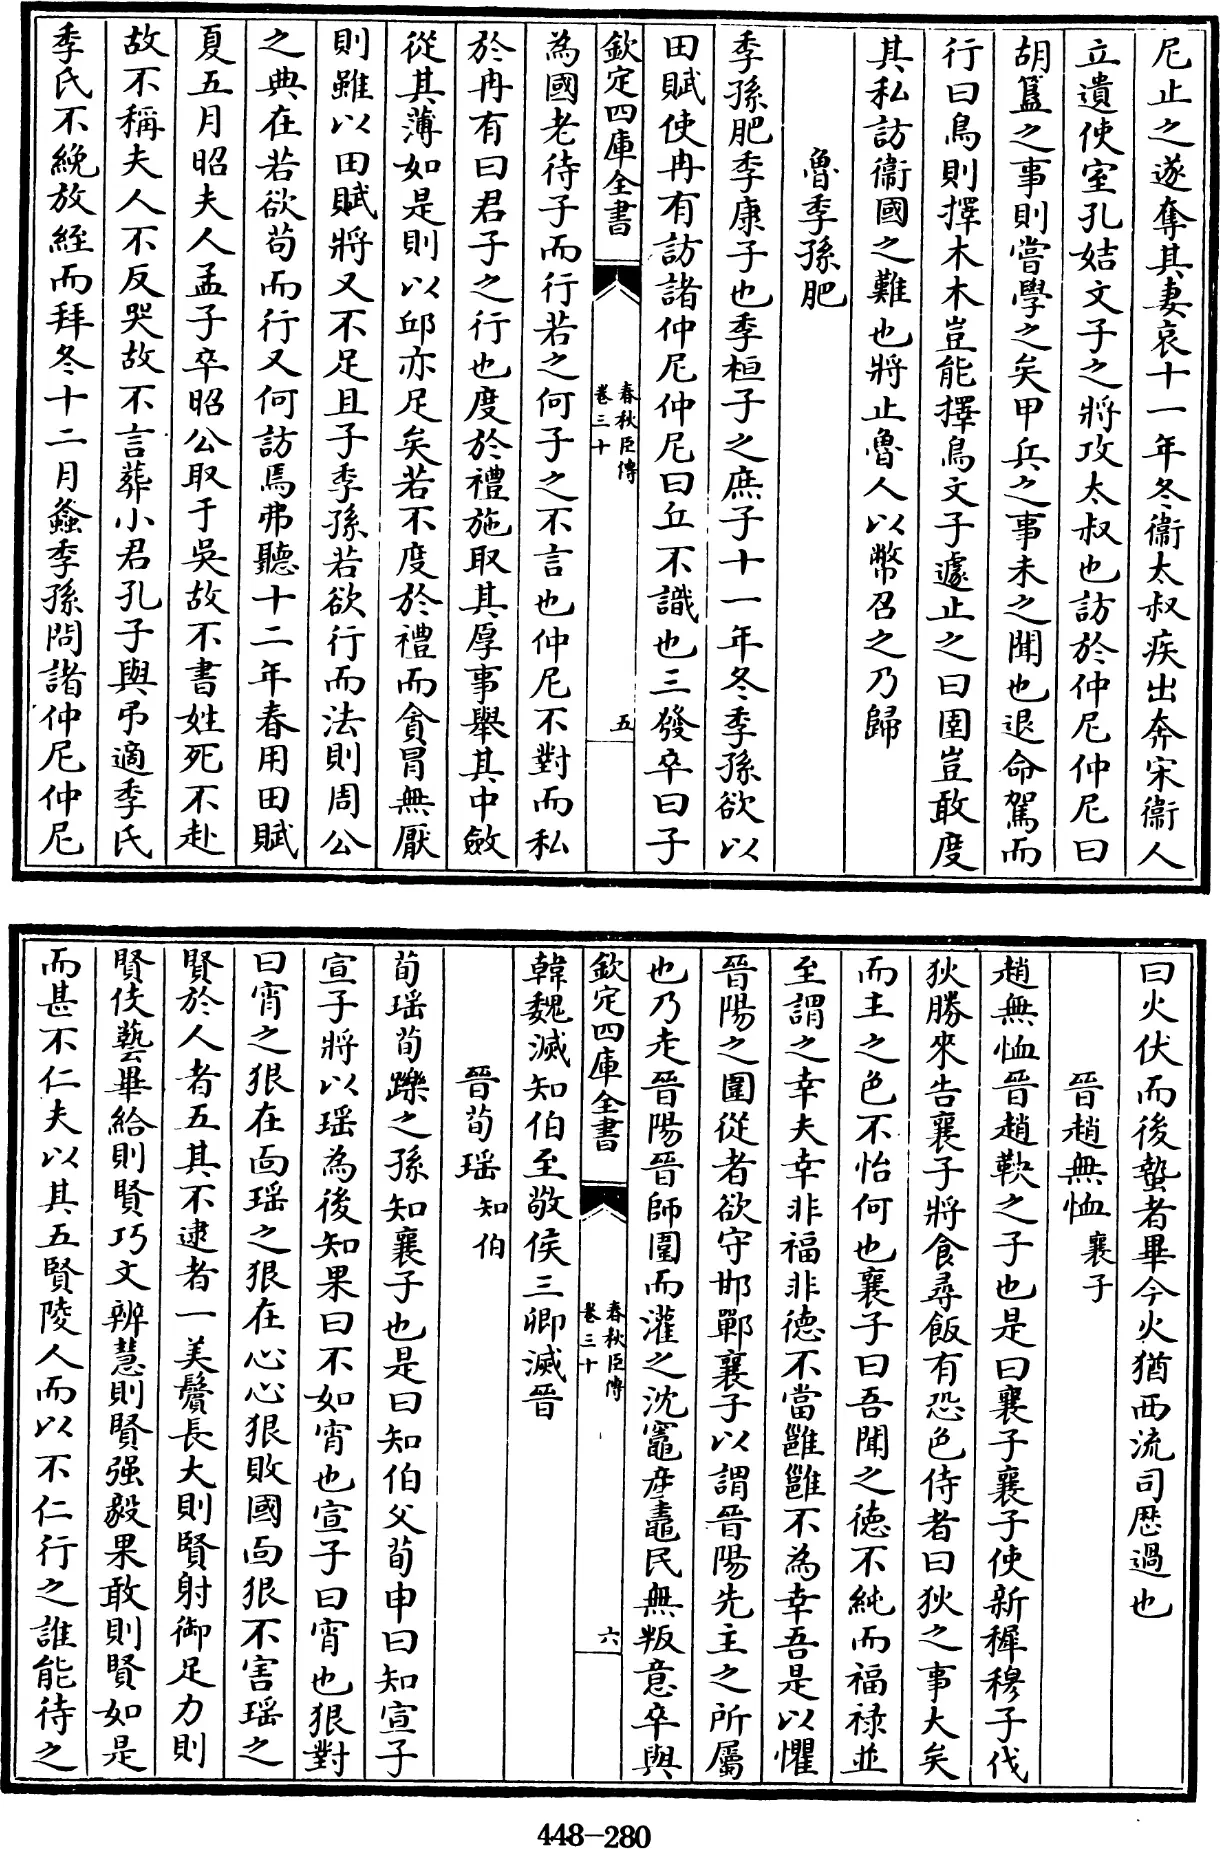 尼止之遂奪其妻哀十一年冬衞太叔疾出奔宋衞人
立遺使室孔姞文子之將攻太叔也訪於仲尼仲尼曰
胡簋之事則嘗學之矣甲兵之事未之聞也退命駕而
行曰鳥則擇木木豈能擇鳥文子遽止之曰圉豈敢度
其私訪衞國之難也將止魯人以幣召之乃歸
魯季孫肥
季孫肥季康子也季桓子之庶子十一年冬季孫欲以
田賦使冉有訪諸仲尼仲尼曰丘不識也三發卒曰子
欽定四庫全書
春秋臣傳
卷三十
五
為國老待子而行若之何子之不言也仲尼不對而私
於冉有曰君子之行也度於禮施取其厚事舉其中斂
從其薄如是則以邱亦足矣若不度於禮而貪冒無厭
則雖以田賦將又不足且子季孫若欲行而法則周公
之典在若欲苟而行又何訪焉弗聽十二年春用田賦
夏五月昭夫人孟子卒昭公取于吳故不書姓死不赴
故不稱夫人不反哭故不言葬小君孔子與弔適季氏
季氏不絻放絰而拜冬十二月螽季孫問諸仲尼仲尼
曰火伏而後蟄者畢今火猶西流司歷過也
晉趙無恤 襄子
趙無恤晉趙鞅之子也是曰襄子襄子使新穉穆子伐
狄勝來告襄子將食尋飯有恐色侍者曰狄之事大矣
而主之色不怡何也襄子曰吾聞之德不純而福祿並
至謂之幸夫幸非福非德不當雝雝不為幸吾是以懼
晉陽之圍從者欲守邯鄲襄子以謂晉陽先主之所屬
也乃走晉陽晉師圍而灌之沈竈產鼃民無叛意卒與
欽定四庫全書
春秋臣傳
卷三十
六
韓魏滅知伯至敬侯三卿滅晉
晉荀瑤 知伯
荀瑤荀躒之孫知襄子也是曰知伯父荀申曰知宣子
宣子將以瑤為後知果曰不如宵也宣子曰宵也狠對
曰宵之狠在面瑤之狠在心心狠敗國面狠不害瑤之
賢於人者五其不逮者一美鬢長大則賢射御足力則
賢伎藝畢給則賢巧文辨慧則賢强毅果敢則賢如是
而甚不仁夫以其五賢陵人而以不仁行之誰能待之
448-280